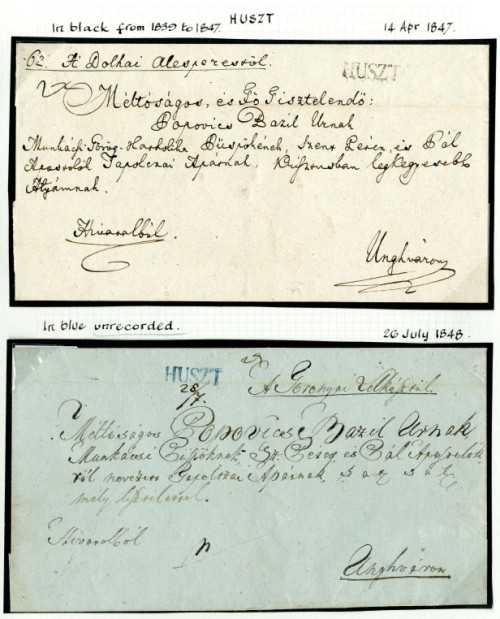 HUSZT
In black from 1839 to 1847.
14 Apr 1847.
62. A Dolhai Alesperestöl.
HUSZT
Méltóságos, és Fö Tisztelendö:
Popovics Bazil Urnak
Munkácsi Görög Katholika Püspökének, Szent Péter, és Pál
Apostolról Tapolczai Apátnak, legkegyesebb
Atyámnak.
Hivatalból.
Unghváron
In blue unrecorded.
26 July 1848.
HUSZT
28/7.
A
Méltóságos Popovics Bazil Urnak
Munkácsi Püspöknek Sz. és Pál
ról nevezett Tapolczai Apátnak s a t s a t
mely tisztelettel.
Hivatalból
Unghváron